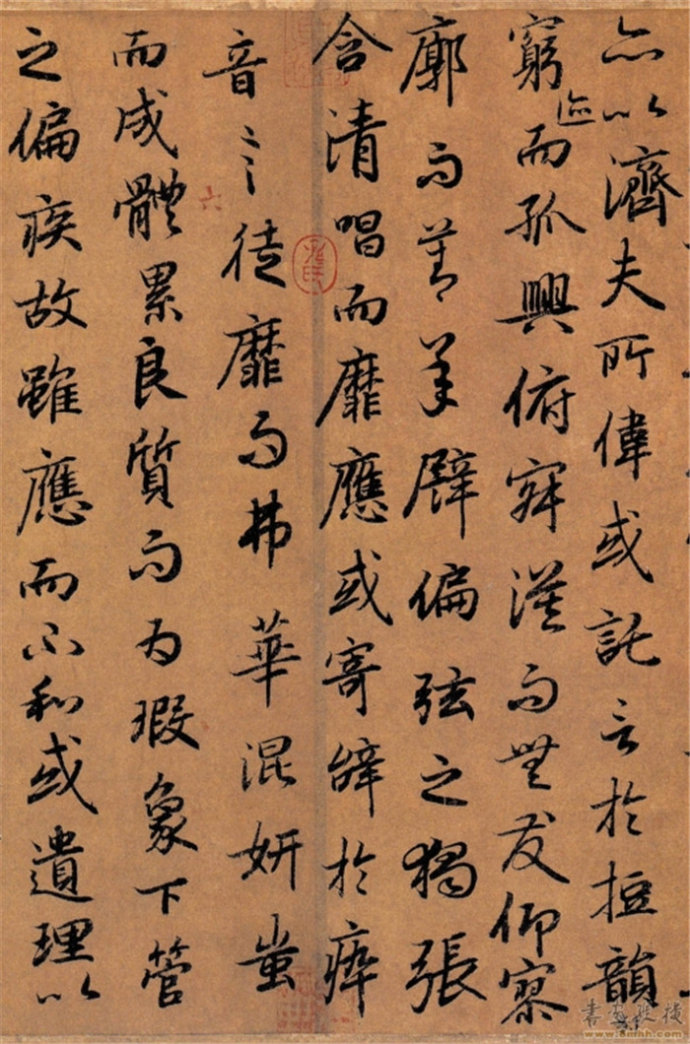 亦以濟夫所偉或託言於短韻
窮迹而孤興俯寂漠而無友仰寥
廓而莫承譬偏弦之獨張
含清唱而靡應或寄辭於瘁
音言徒靡而弗華混妍蚩
而成體累良質而為瑕象下管
之偏疾故雖應而不和或遺理以
六